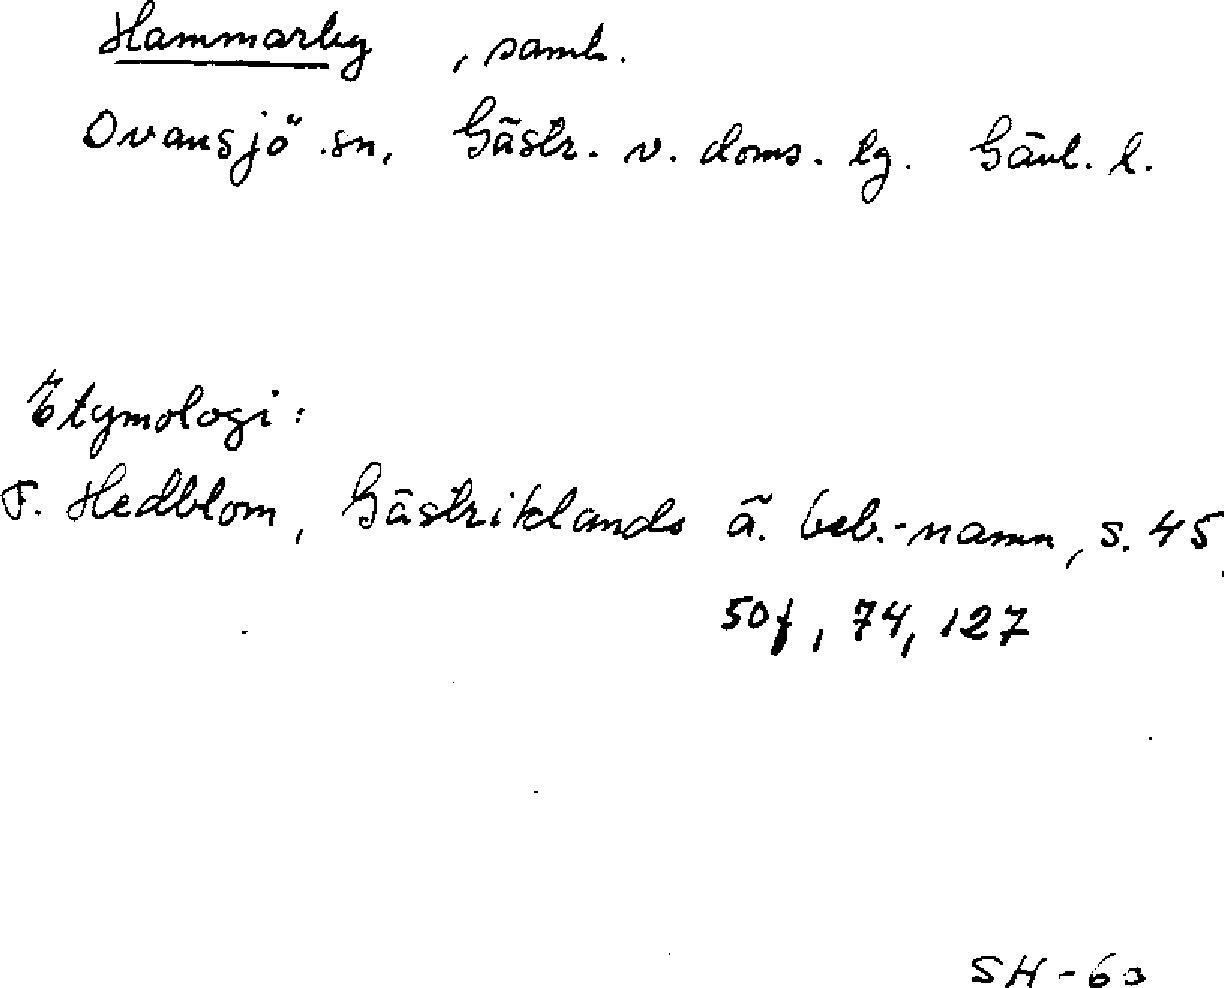 Hammarby, samh.
Ovansjö sn, Gästr. v. doms. lg. Gävl. l.
Etymologi:
F. Hedblom, Gästriklands ä. beb.-namn, s. 45,
50f, 74, 127
SH-60